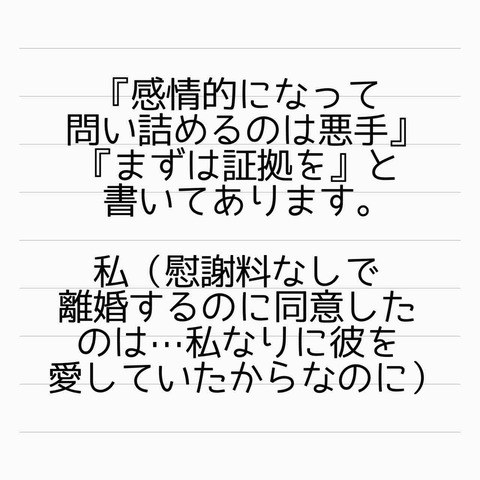 『感情的になって
問い詰めるのは悪手』
『まずは証拠を』と
書いてあります。
私（慰謝料なしで
離婚するのに同意した
のは…私なりに彼を
愛していたからなのに）